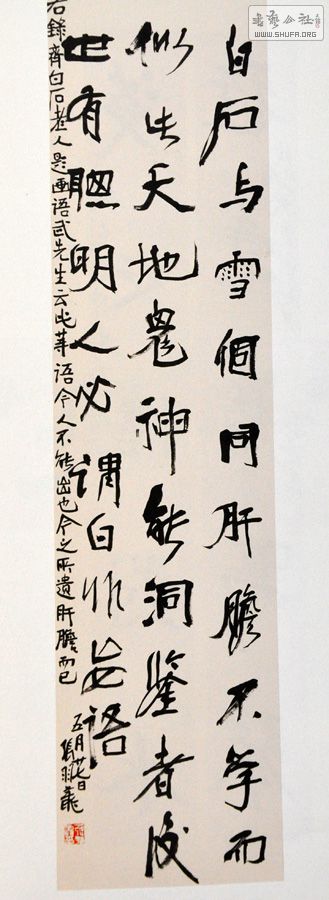 白石与雪個同肝膽不学而
似此天地鬼神能洞鉴者後
世有聰明人必謂白非妄語
右錄齊白石老人題画语武先生云此等语今人不能出也今之所遗肝膽而已
五月花日
書藝公社
WWW.SHUFA.ORG